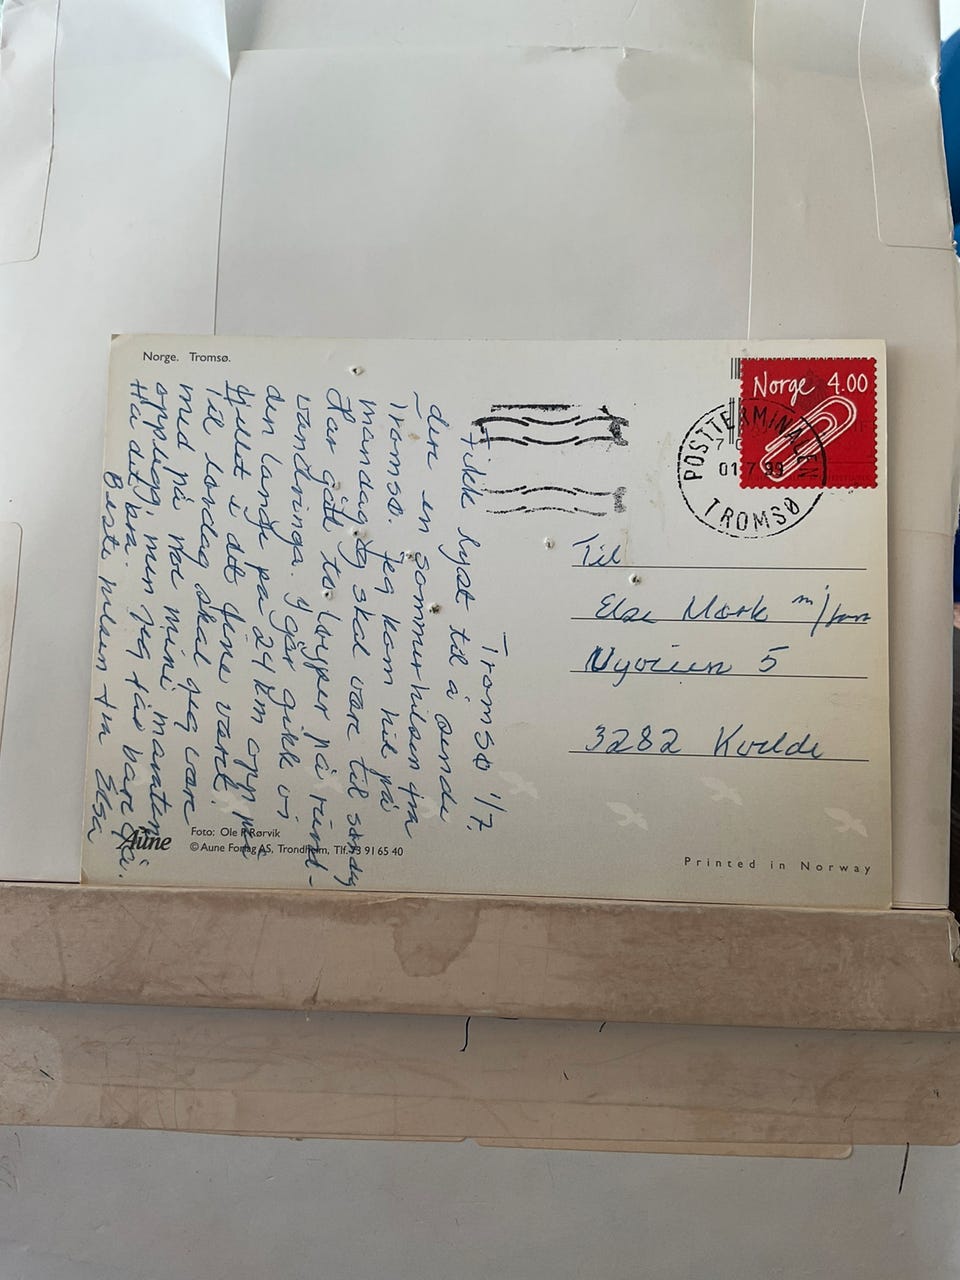 Norge. Tromsø.
Tromsø 1/7.
Fikk lyst til å sende
dere en sommerhilsen fra
Tromsø. Jeg kom hit på
mandag og skal være til søndag
Har gått to løyper på rund-
vandringa. I går gikk vi
den lange på 24 km opp på
fjellet i det fine været.
Til lørdag skal jeg være
med på noe mini maraton
opplegg, men jeg tar bare gå.
Ha det bra.
Beste hilsen fra Elsa
Norge 4.00
POSTTERMINALEN
01·7·99
TROMSØ
Til
Else Mørk m/fam
Nyveien 5
3282 Kvelde
Aune
Foto: Ole P. Rørvik
© Aune Forlag AS, Trondheim, Tlf. 73 91 65 40
Printed in Norway